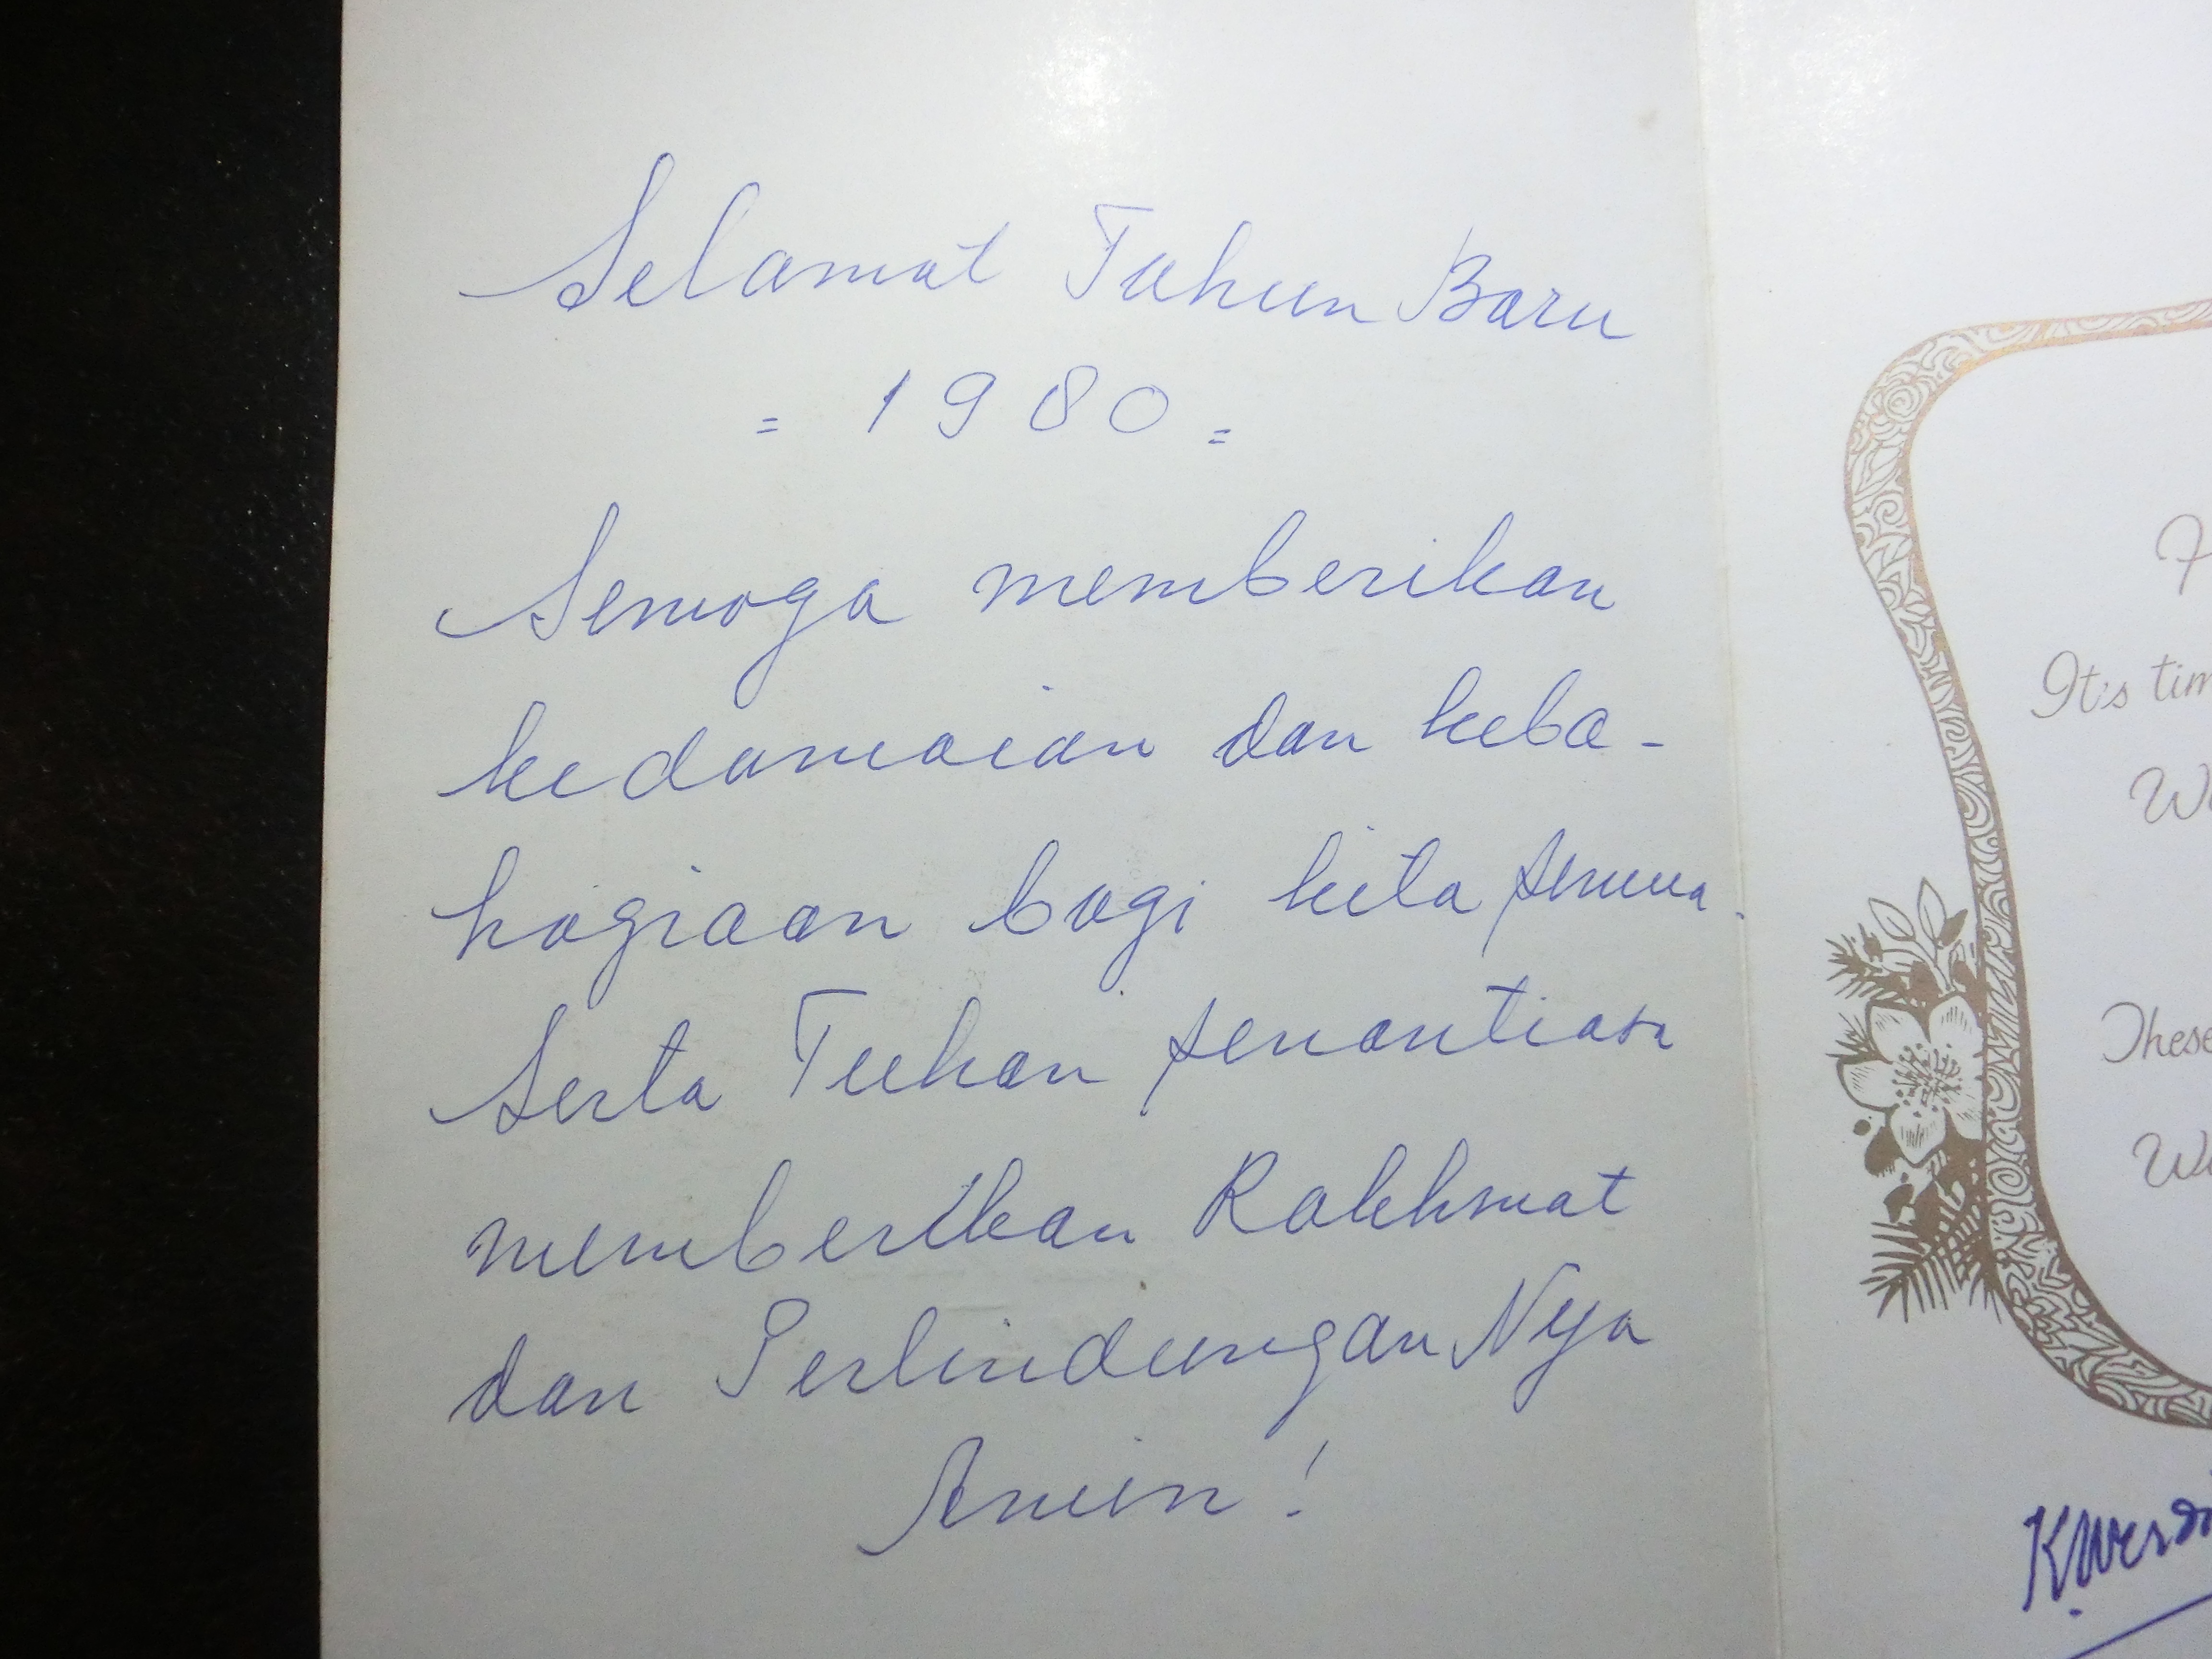 Selamat Tahun Baru
= 1980 =
Semoga memberikan
kedamaian dan keba-
hagiaan bagi kita semua.
Serta Tuhan senantiasa
memberikan Rakhmat
dan Perlindungan Nya
Amin!
It's
These